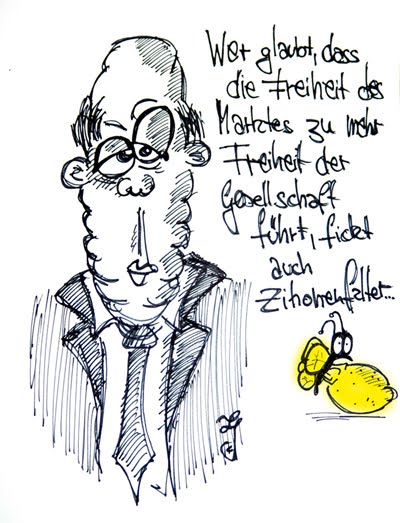 Wer glaubt, dass
die Freiheit des
Marktes zu mehr
Freiheit der
Gesellschaft
führt, fickt
auch
Zitronenfalter...